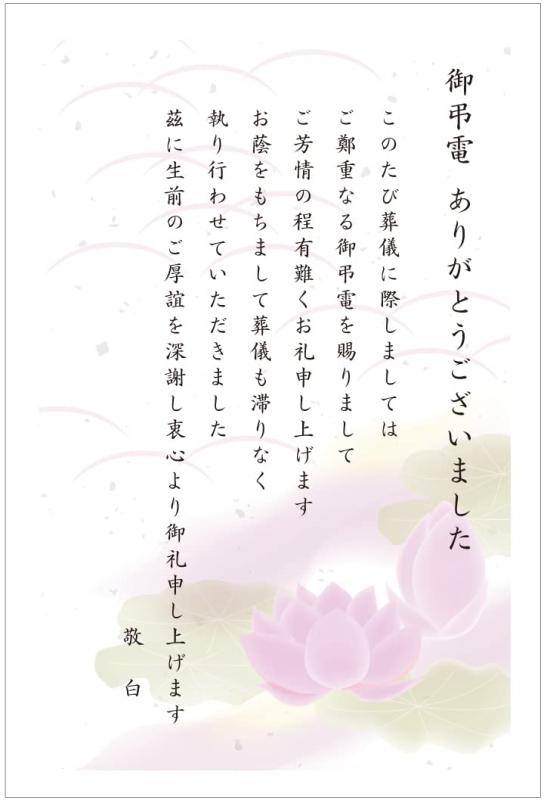 御弔電 ありがとうございました
このたび葬儀に際しましては
ご鄭重なる御弔電を賜りまして
ご芳情の程有難くお礼申し上げます
お蔭をもちまして葬儀も滞りなく
執り行わせていただきました
茲に生前のご厚誼を深謝し衷心より御礼申し上げます
敬 白